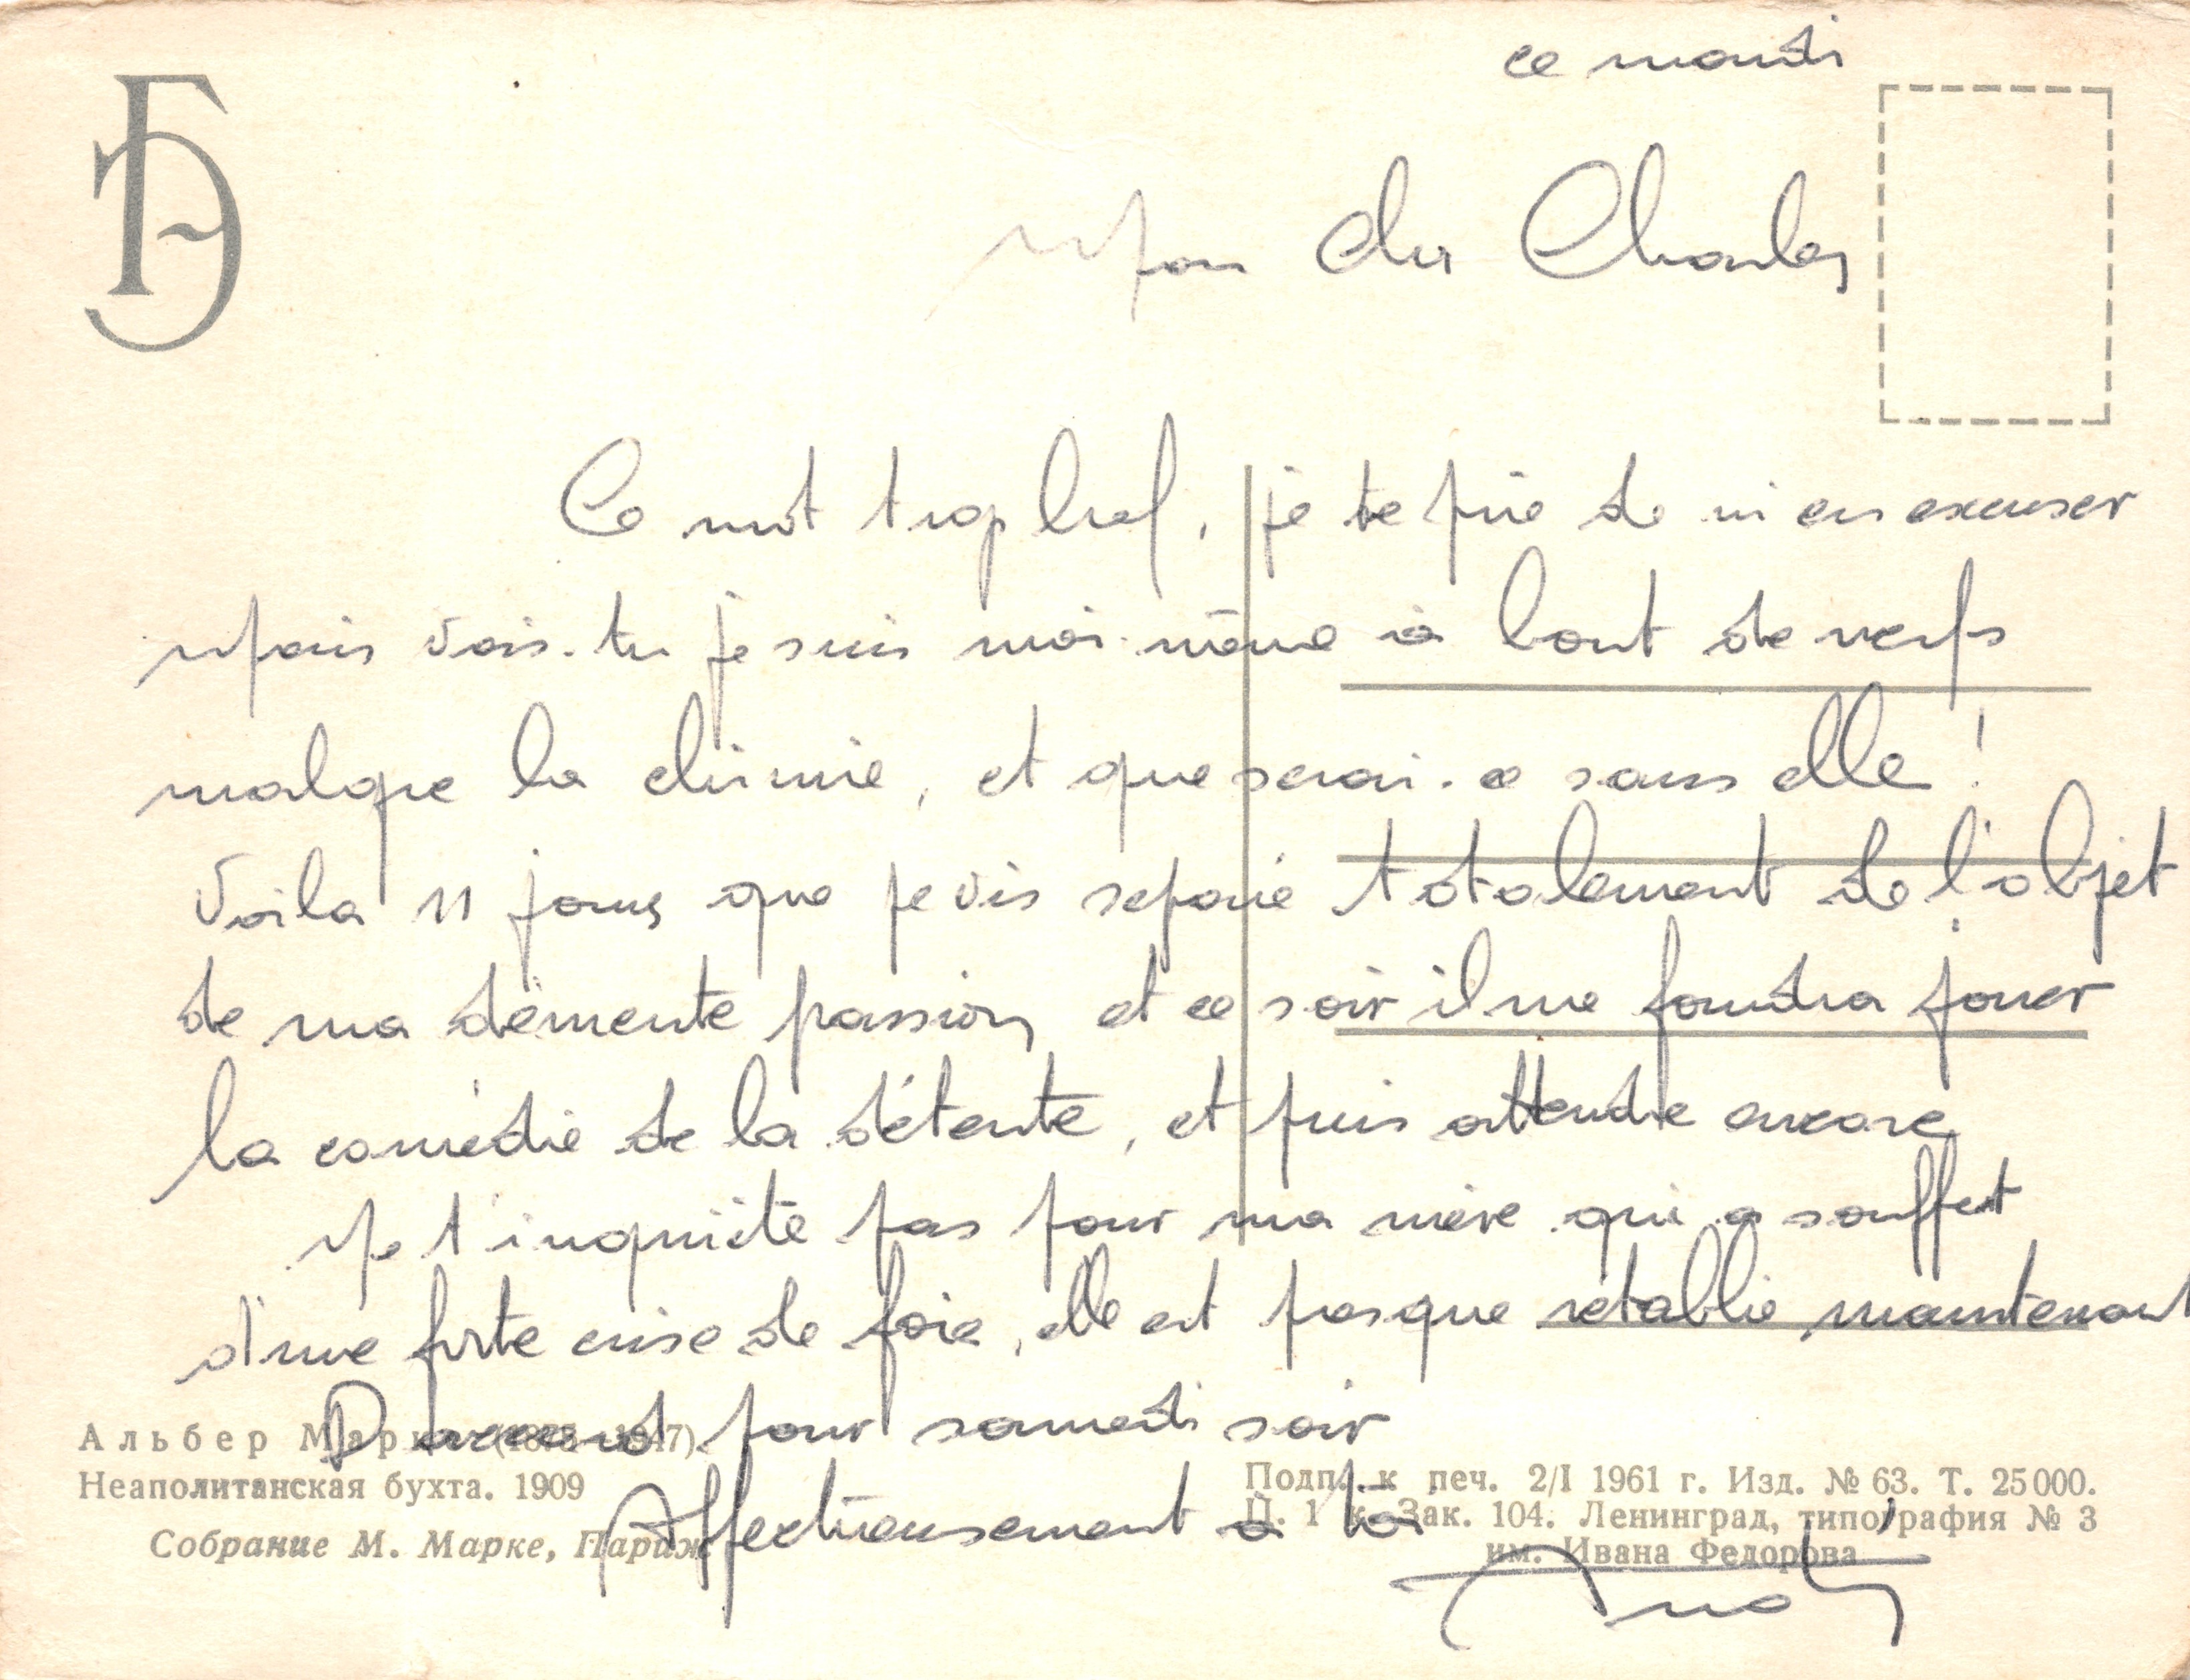 ce mardi
Mon cher Charles
Ce mot trop bref, je te prie de m'en excuser
Mais vois-tu je suis moi-même à bout de nerfs
malgre la chimie, et que serai-ce sans elle !
Voila 11 jours que je vis separé totalement de l'objet
de ma démente passion et ce soir il me faudra jouer
la comédie de la détente, et puis attendre encore
Ne t'inquiète pas pour ma mère qui a souffert
d'une forte crise de foie, elle est presque rétablie maintenant
D'accord pour samedi soir
Affectueusement à toi
Альбер Марке (1875–1947).
Неаполитанская бухта. 1909
Собрание М. Марке, Париж
Подп. к печ. 2/I 1961 г. Изд. № 63. Т. 25000.
Ц. 1 к. Зак. 104. Ленинград, типография № 3
им. Ивана Федорова